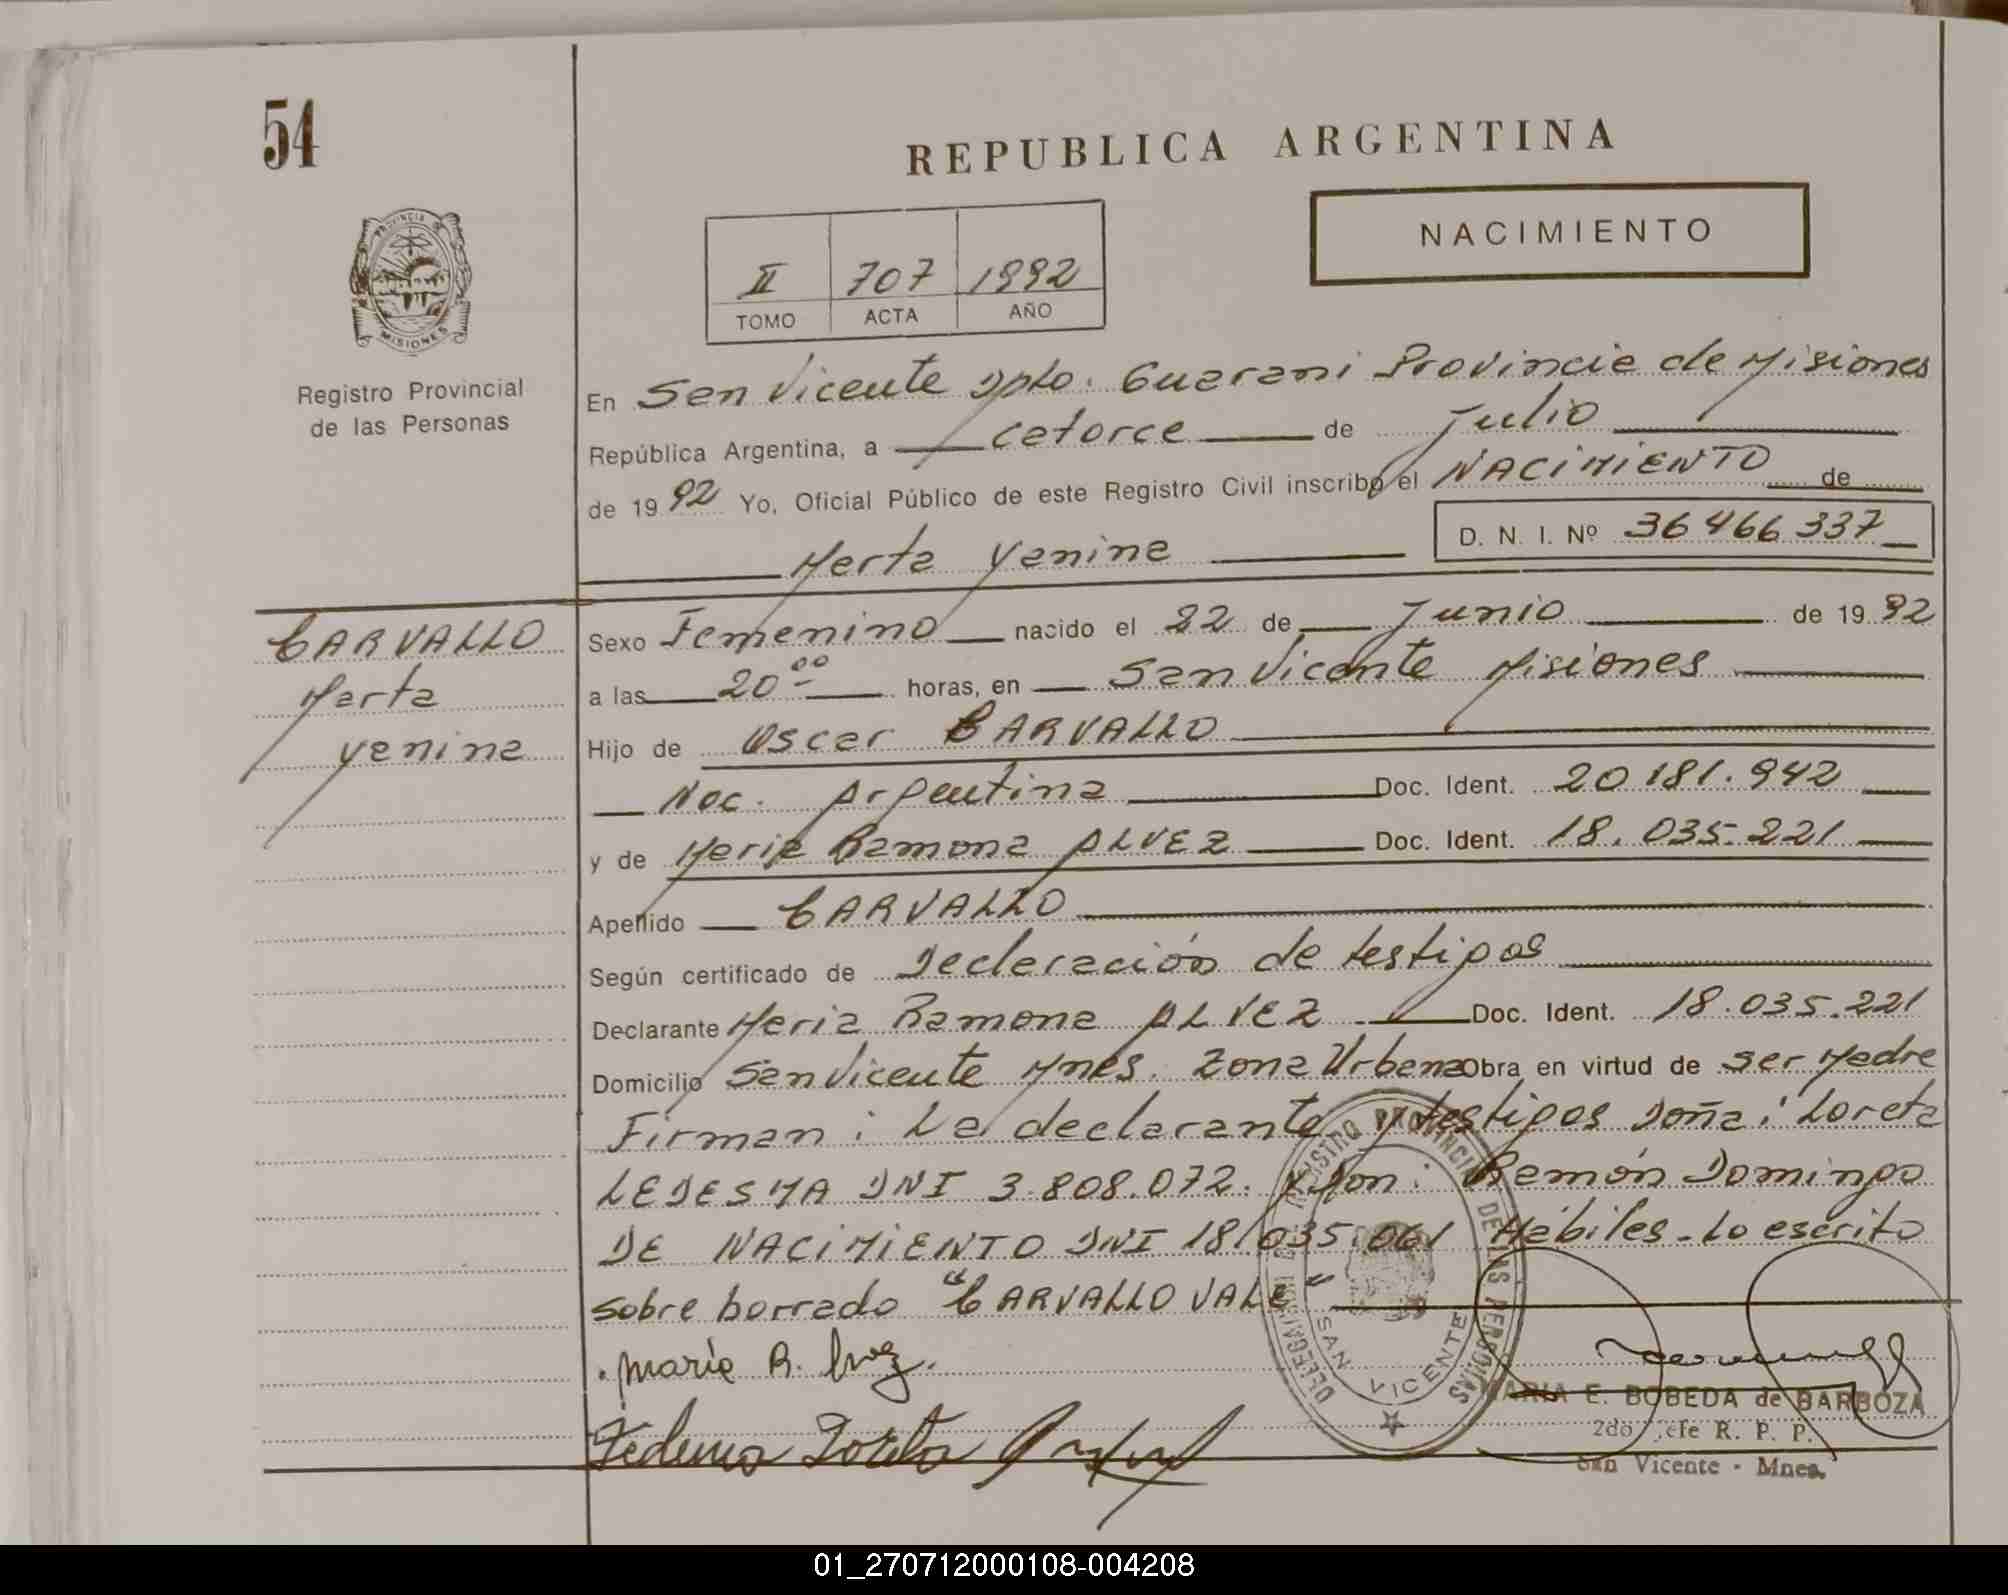 54
REPUBLICA ARGENTINA
NACIMIENTO
II 707 1992
TOMO ACTA AÑO
PROVINCIA DE
MISIONES
Registro Provincial
de las Personas
En San Vicente Dpto. Guarani Provincia de Misiones
República Argentina, a catorce de Julio
de 1992 Yo, Oficial Público de este Registro Civil inscribo el NACIMIENTO de
Marta Yanina
D. N. I. Nº 36466337
CARVALLO
Marta
Yanina
Sexo Femenino nacido el 22 de Junio de 1992
a las 20 00 horas, en San Vicente Misiones
Hijo de Oscar CARVALLO
Nac. Argentina Doc. Ident. 20181.942
y de Maria Ramona ALVEZ Doc. Ident. 18.035.221
Apellido CARVALLO
Según certificado de Declaración de testigos
Declarante Maria Ramona ALVEZ Doc. Ident. 18.035.221
Domicilio San Vicente Mnes. Zona Urbana Obra en virtud de ser Madre
Firman: La declarante y testigos Doña: Loreta
LEDESMA DNI 3.808.072. y Don: Ramón Domingo
DE NACIMIENTO DNI 18.035.061 Hábiles - Lo escrito
sobre borrado "CARVALLO VALE"
REGISTRO PROVINCIAL DE LAS PERSONAS
SAN VICENTE
Maria R.
MARIA E. BOBEDA de BARBOZA
2do Jefe R. P. P.
San Vicente - Mnes.
01_270712000108-004208